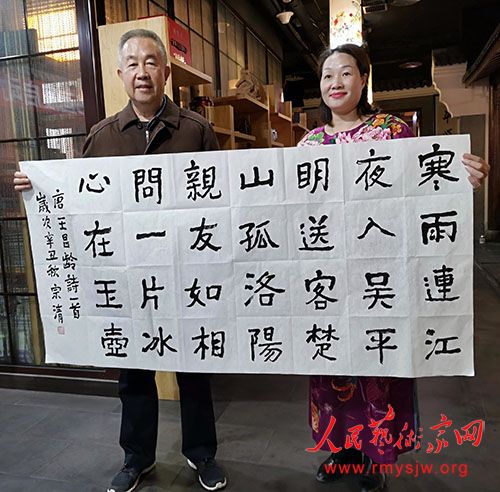 寒雨連江
夜入吴平
眀送客楚
山孤洛陽
親友如相
問一片冰
心在玉壺
唐王昌齡詩一首
歲次辛丑秋宗清
人民藝術家网
www.rmysjw.org